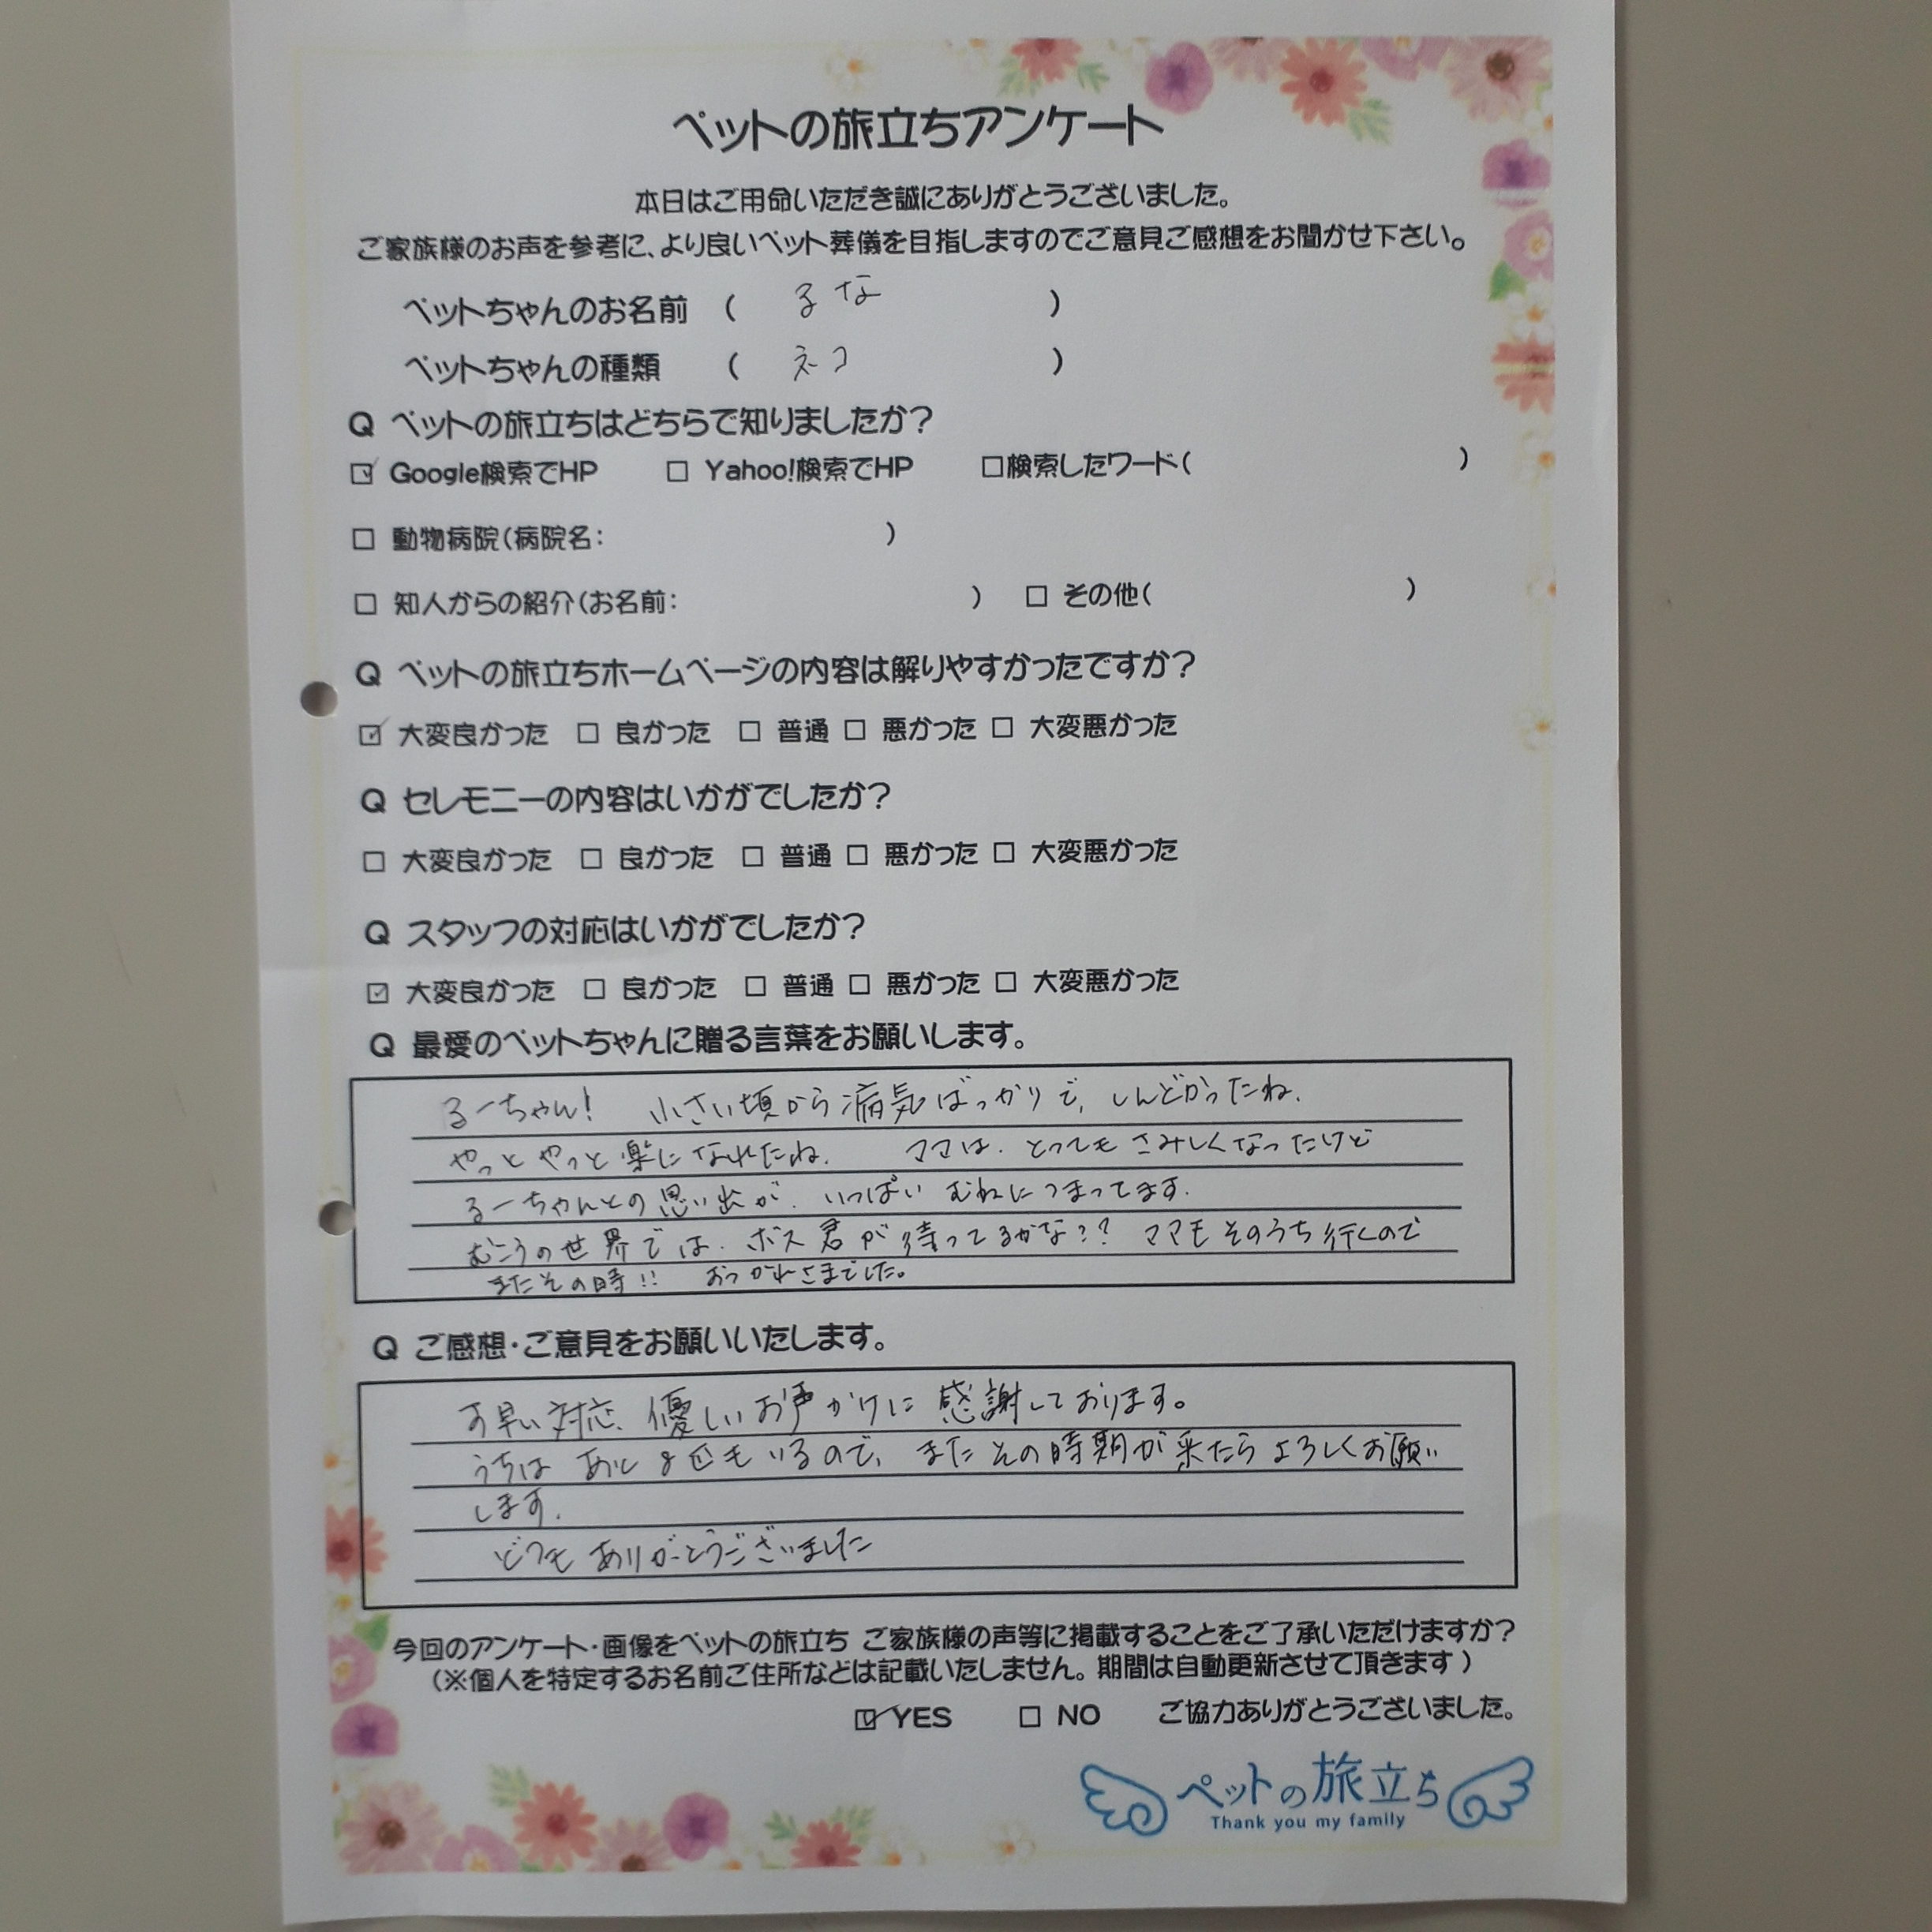 ペットの旅立ちアンケート
本日はご用命いただき誠にありがとうございました。
ご家族様のお声を参考に、より良いペット葬儀を目指しますのでご意見ご感想をお聞かせ下さい。
ペットちゃんのお名前 ( るな )
ペットちゃんの種類 ( ネコ )
Q ペットの旅立ちはどちらで知りましたか?
☑ Google検索でHP □ Yahoo!検索でHP □検索したワード( )
□ 動物病院(病院名: )
□ 知人からの紹介(お名前: ) □ その他( )
Q ペットの旅立ちホームページの内容は解りやすかったですか?
☑ 大変良かった □ 良かった □ 普通 □ 悪かった □ 大変悪かった
Q セレモニーの内容はいかがでしたか?
□ 大変良かった □ 良かった □ 普通 □ 悪かった □ 大変悪かった
Q スタッフの対応はいかがでしたか?
☑ 大変良かった □ 良かった □ 普通 □ 悪かった □ 大変悪かった
Q 最愛のペットちゃんに贈る言葉をお願いします。
るーちゃん! 小さい頃から病気ばっかりで、しんどかったね.
やっとやっと楽になれたね. ママは、とってもさみしくなったけど
るーちゃんとの思い出が、いっぱいむねにつまってます.
むこうの世界では、ボス君が待ってるかな?? ママもそのうち行くので
またその時!! おつかれさまでした。
Q ご感想・ご意見をお願いいたします。
す早い対応、優しいお声かけに感謝しております。
うちはあと8匹もいるので、またその時期が来たらよろしくお願い
します.
どうもありがとうございました
今回のアンケート・画像をペットの旅立ち ご家族様の声等に掲載することをご了承いただけますか?
(※個人を特定するお名前ご住所などは記載いたしません。期間は自動更新させて頂きます)
☑ YES □ NO ご協力ありがとうございました。
ペットの旅立ち
Thank you my family